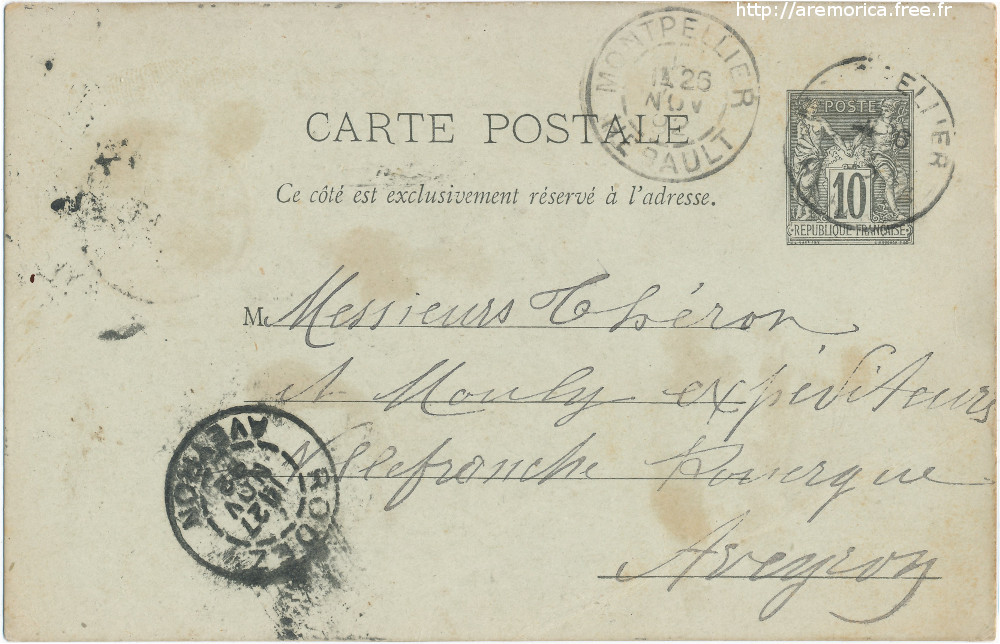 http://aremorica.free.fr
MONTPELLIER
26
NOV
HERAULT
ELLIER
POSTE
10
REPUBLIQUE FRANÇAISE
CARTE POSTALE
Ce côté est exclusivement réservé à l'adresse.
M Messieurs Théron
et Mouly expéditeurs
Villefranche Rouergue
Aveyron
RODEZ
27
NOV
AVEYRON